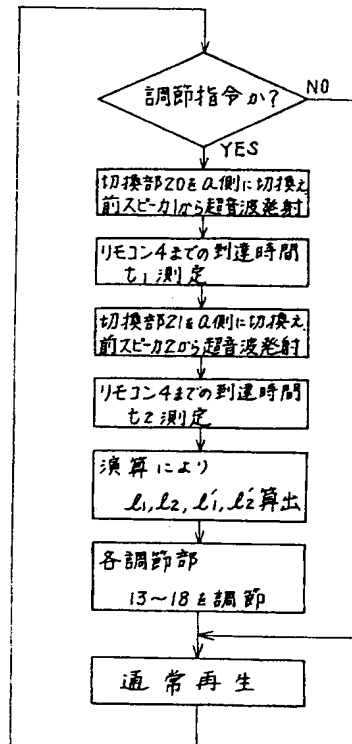 調節指令か?
NO
YES
切換部20をa側に切換え
前スピーカ1から超音波発射
リモコン4までの到達時間
t1測定
切換部21をa側に切換え
前スピーカ2から超音波発射
リモコン4までの到達時間
t2測定
演算により
l1,l2,l1′,l2′算出
各調節部
13~18を調節
通常再生